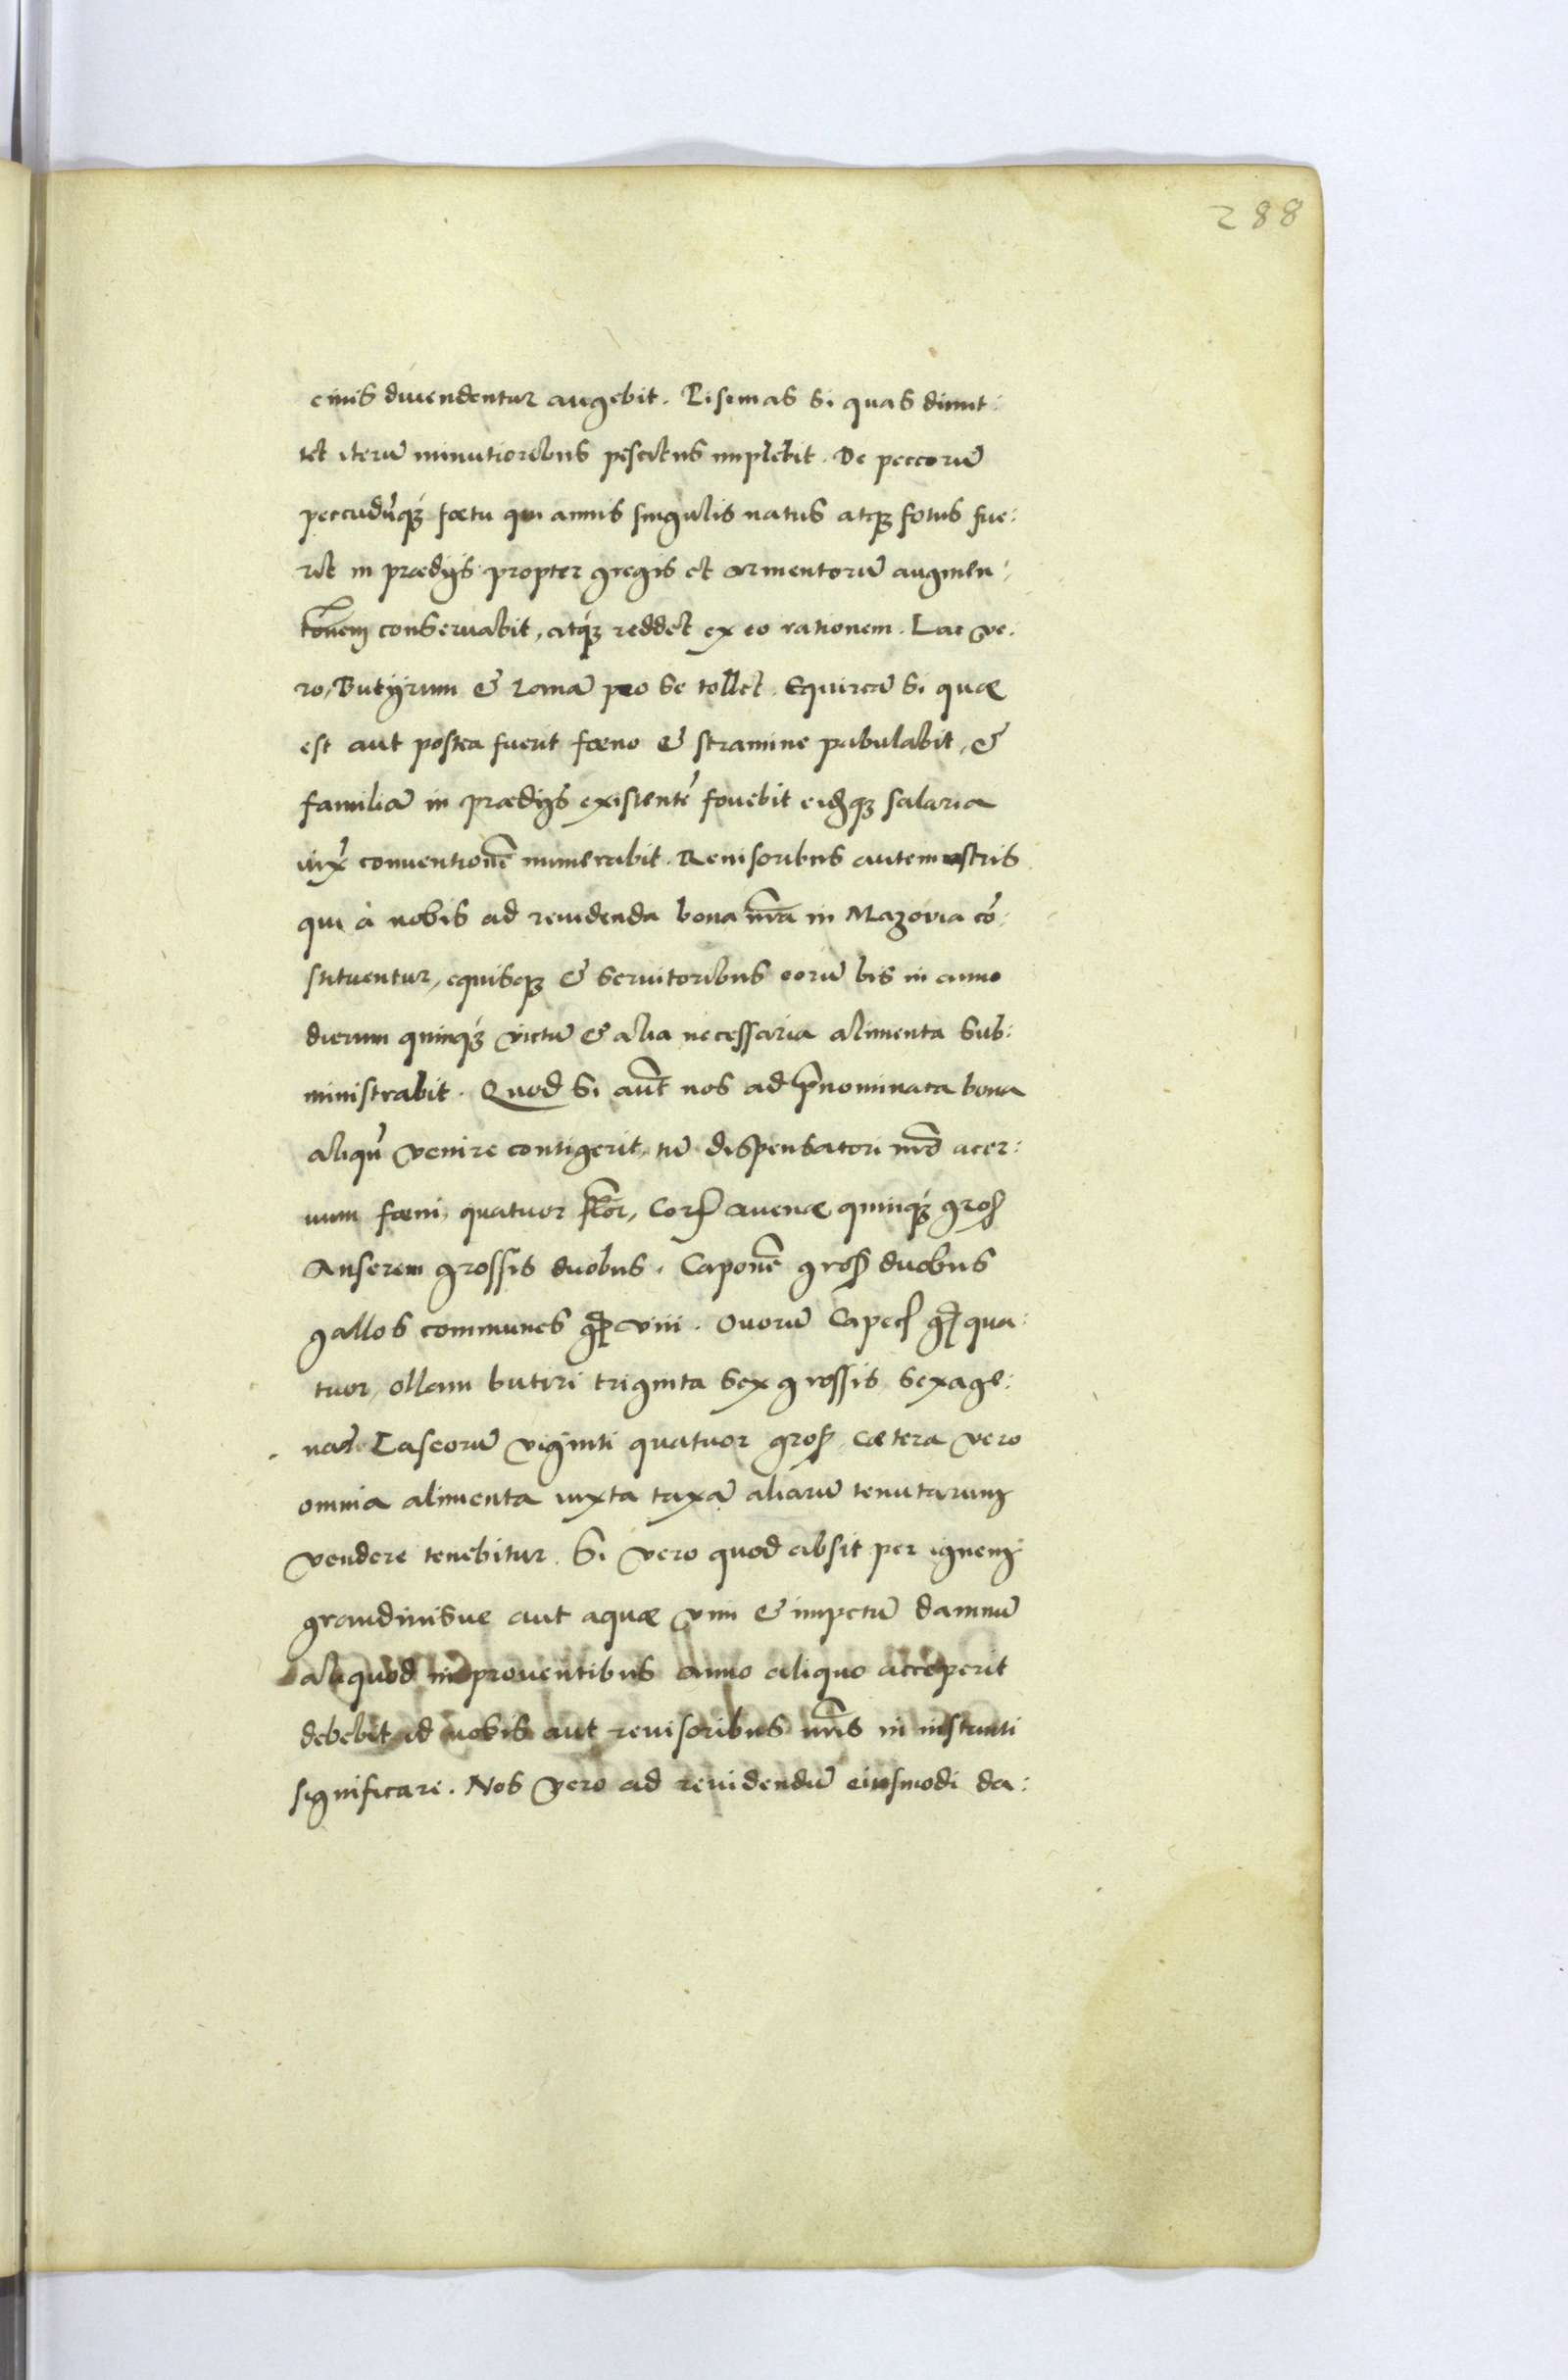 288
eius diuendentur augebit. Pisinas si quas dimit:
tet iterū minutioribus piscibus implebit. De peccorū
peccudūq₃ foetu qui annis singulis natus atq₃ fotus fue:
rit in prædijs propter gregis et armentorū augmen:
tōnem conseruabit, atq₃ reddet ex eo rationem. Lac ve:
ro, Butyrum & Lanā pro se tollet. Equireā si quæ
est aut postea fuerit fœno & stramine pabulabit, &
familiā in prædijs existentē fouebit eidq₃ salaria
iux̄ conuentionē numerabit. Reuisoribus autem nostris
qui à nobis ad reuidenda bona nr̄a in Mazovia cō:
stituentur, equisq₃ & seruitoribus eorū bis in anno
dierum quinq₃ victū & alia necessaria alimenta sub:
ministrabit. Quod si aūt nos ad p̄nominata bona
aliqū venire contigerit, tū dispensatori nr̄o acer:
uum fœni, quatuor flor̄, Cor̄ auenæ quinq₃ gros
Anserem grossis duobus. Caponē gros duobus
gallos communes gr̄ viii. Ouorū Capec gr̄ qua:
tuor, ollam butiri triginta sex grossis, sexage:
nā Caseorū viginti quatuor gros, cætera vero
omnia alimenta iuxta taxā aliarū tenutarum
vendere tenebitur. Si vero quod absit per ignem
grandinisue aut aquæ vim & impetū damnū
aliquod in prouentibus anno aliquo acceperit
debebit id nobis aut reuisoribus nr̄is in instanti
significare. Nos vero ad reuidendū eiusmodi da: